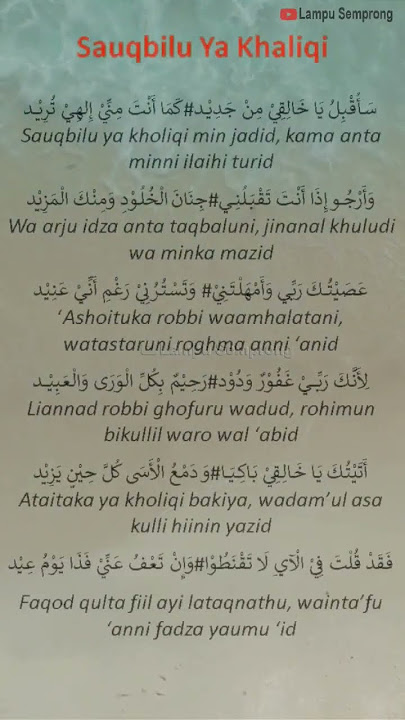 Lampu Semprong
Sauqbilu Ya Khaliqi
سَأُقْبِلُ يَا خَالِقِيْ مِنْ جَدِيْد#كَمَا أَنْتَ مِنِّيْ إِلهِيْ تُرِيْـد
Sauqbilu ya kholiqi min jadid, kama anta
minni ilaihi turid
وَأَرْجُـو إِذَا أَنْتَ تَقْبَلُنِـي#جِنَانَ الْخُلُوْدِ وَمِنْكَ الْمَزِيْد
Wa arju idza anta taqbaluni, jinanal khuludi
wa minka mazid
عَصَيْتُـكَ رَبِّي وَأَمْهَلْتَنِيْ# وَتَسْتُرُنِيْ رَغْمِ أَنِّيْ عَنِيْد
‘Ashoituka robbi waamhalatani,
watastaruni roghma anni ‘anid
لِأَنَّكَ رَبِّـيْ غَفُوْرٌ وَدُوْد#رَحِيْمٌ بِكُلِّ الْوَرَى وَالْعَبِيْـد
Liannad robbi ghofuru wadud, rohimun
bikullil waro wal ‘abid
أَتَيْتُكَ يَا خَالِقِيْ بَاكِيَـا#وَ دَمْعُ الْأَسَى كُلَّ حِيْنٍ يَزِيْد
Ataitaka ya kholiqi bakiya, wadam’ul asa
kulli hiinin yazid
فَقَدْ قُلْتَ فِيْ الْآيِ لَا تَقْنَطُوْا#وَإِنْ تَعْفُ عَنِّيْ فَذَا يَوْمُ عِيْد
Faqod qulta fiil ayi lataqnathu, wainta’fu
‘anni fadza yaumu ‘id